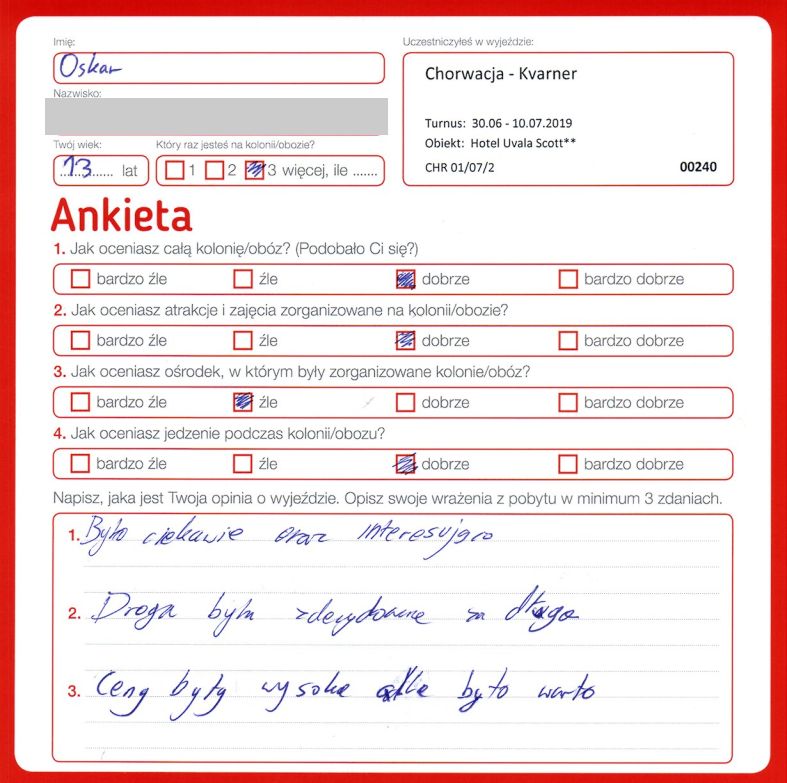 Imię:
Uczestniczyłeś w wyjeździe:
Oskar
Chorwacja - Kvarner
Nazwisko:
Turnus: 30.06 - 10.07.2019
Twój wiek:
Który raz jesteś na kolonii/obozie?
Obiekt: Hotel Uvala Scott**
13 lat
1 2 3 więcej, ile .......
CHR 01/07/2 00240
Ankieta
1. Jak oceniasz całą kolonię/obóz? (Podobało Ci się?)
bardzo źle źle dobrze bardzo dobrze
2. Jak oceniasz atrakcje i zajęcia zorganizowane na kolonii/obozie?
bardzo źle źle dobrze bardzo dobrze
3. Jak oceniasz ośrodek, w którym były zorganizowane kolonie/obóz?
bardzo źle źle dobrze bardzo dobrze
4. Jak oceniasz jedzenie podczas kolonii/obozu?
bardzo źle źle dobrze bardzo dobrze
Napisz, jaka jest Twoja opinia o wyjeździe. Opisz swoje wrażenia z pobytu w minimum 3 zdaniach.
1. Było ciekawie oraz interesująco
2. Droga była zdecydowanie za długa
3. Ceny były wysokie ale było warto